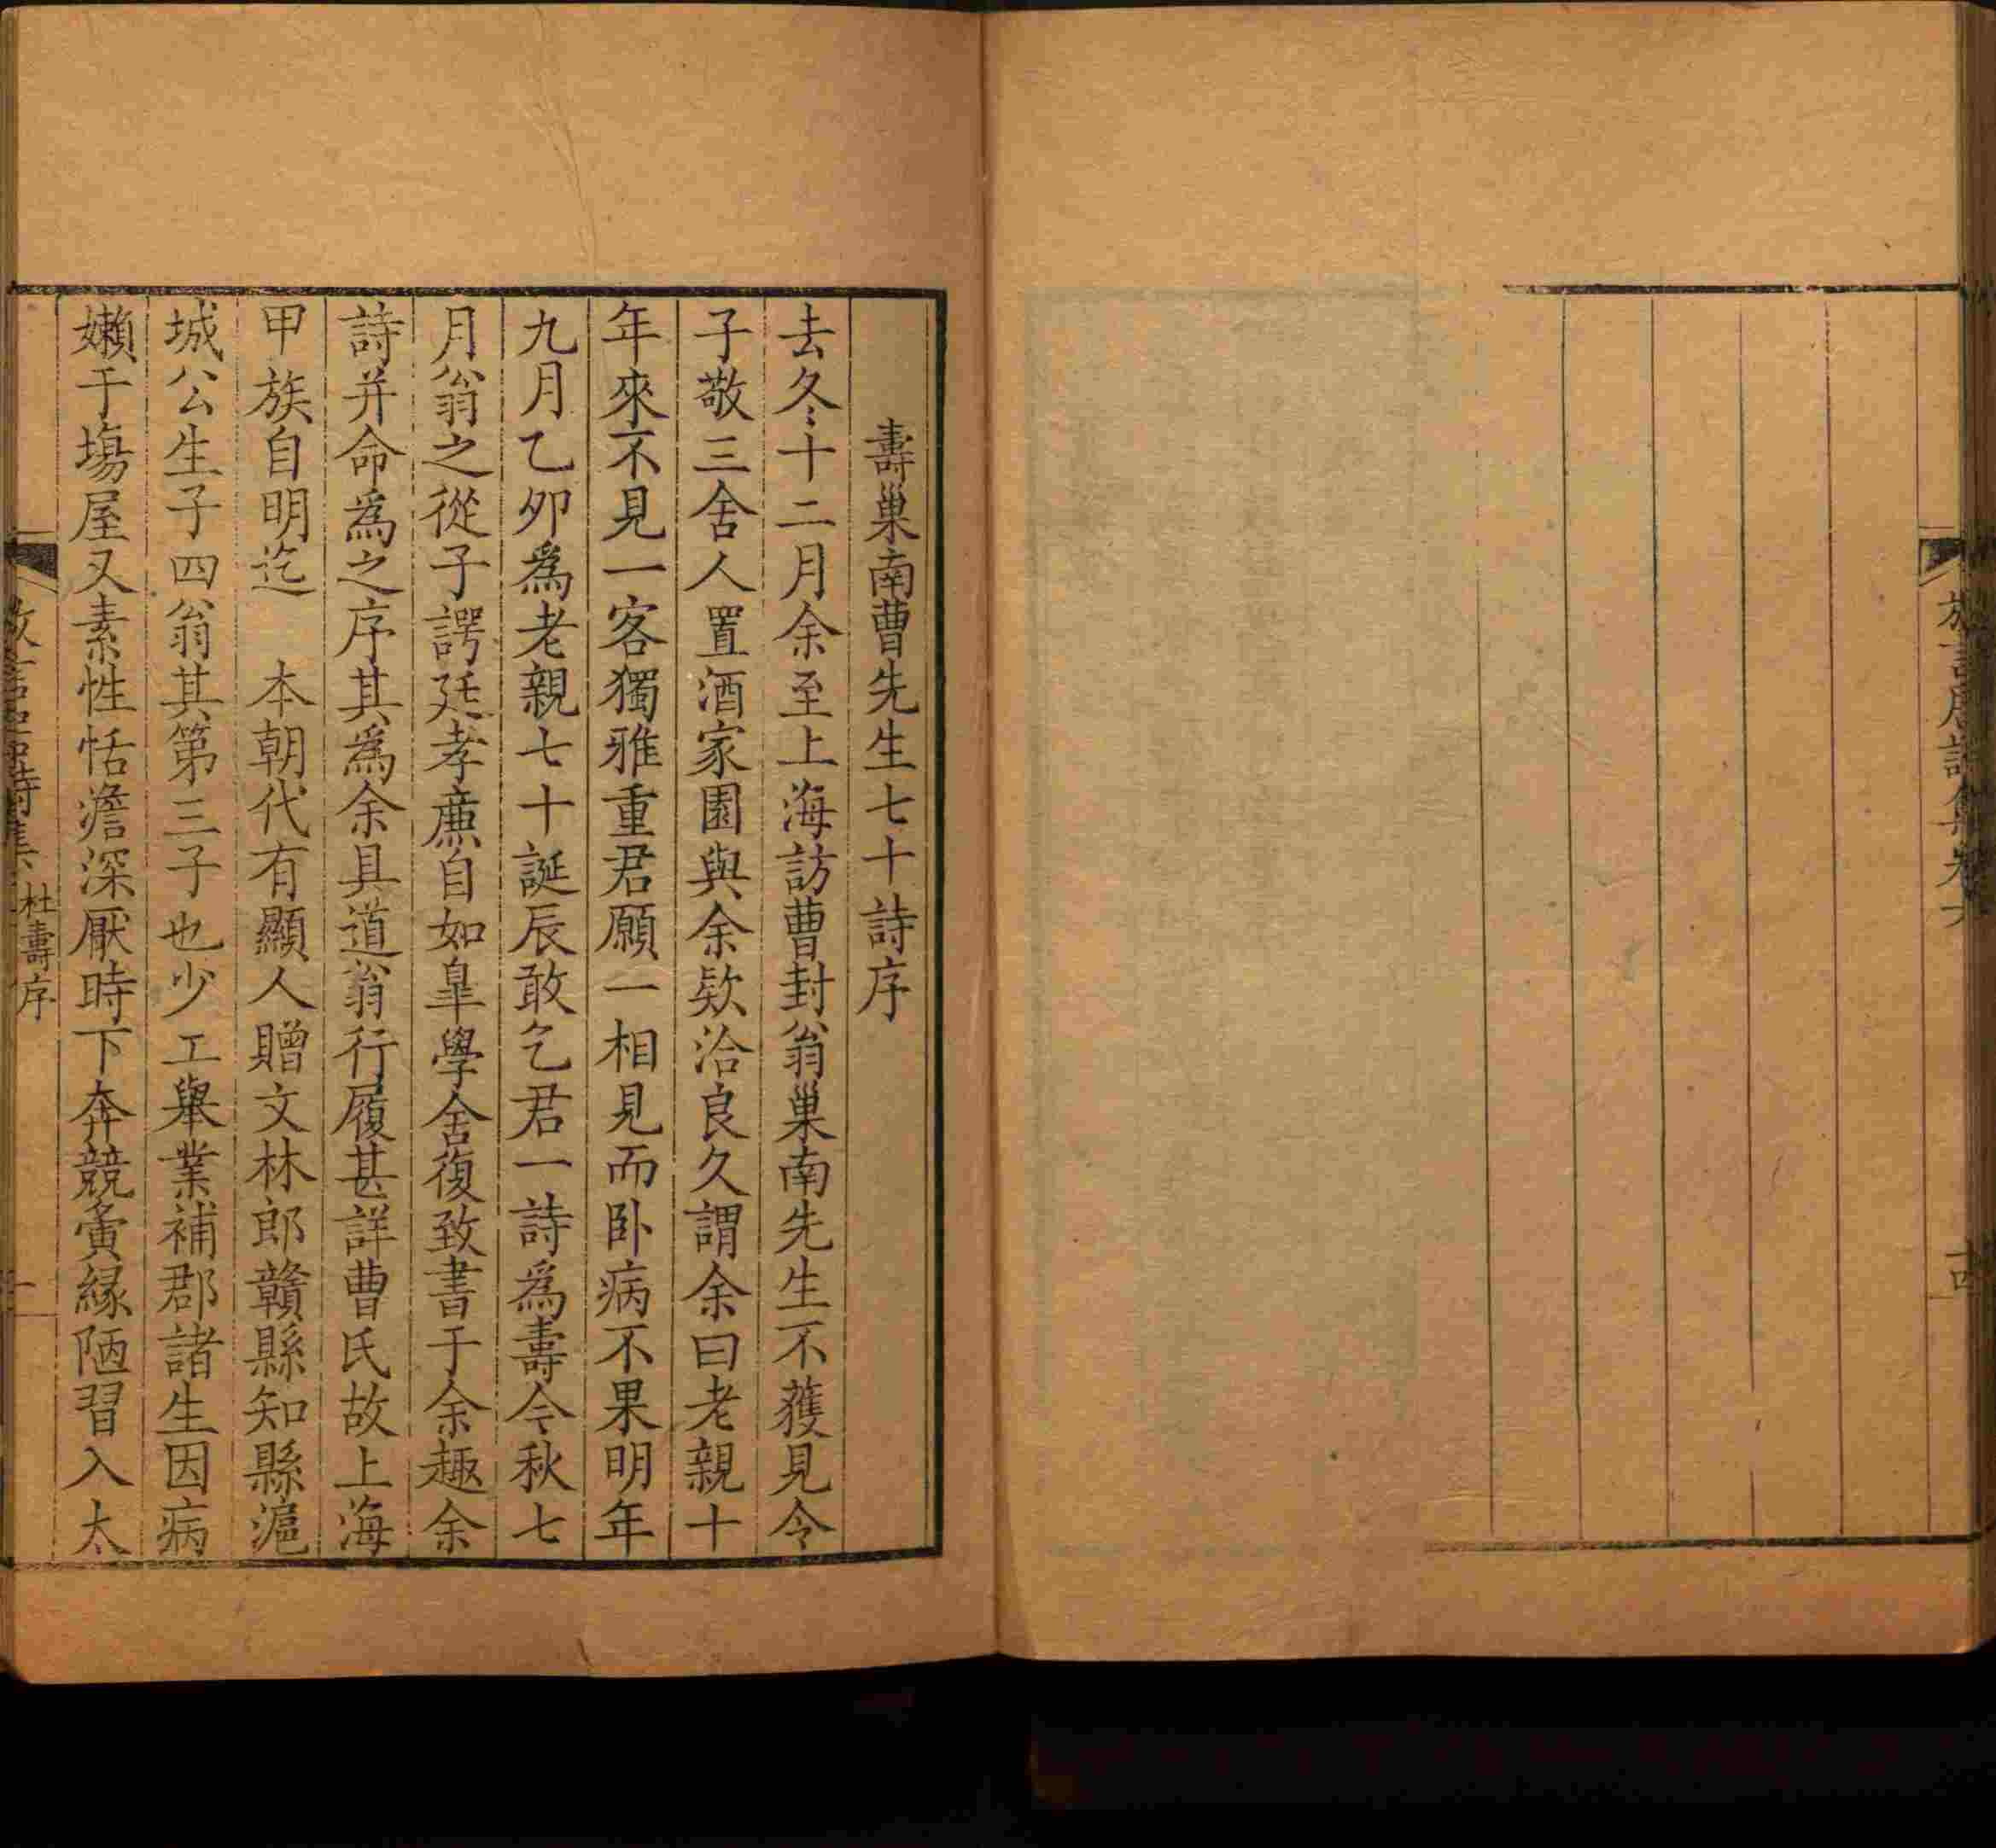 放言居詩集卷六
十四
壽巢南曹先生七十詩序
去冬十二月余至上海訪曹封翁巢南先生不獲見令
子敬三舍人置酒家園與余欵洽良久謂余曰老親十
年來不見一客獨雅重君願一相見而卧病不果明年
九月乙夘爲老親七十誕辰敢乞君一詩爲壽今秋七
月翁之從子諤廷孝廉自如臯學舍復致書于余趣余
詩并命爲之序其爲余具道翁行履甚詳曹氏故上海
甲族自明迄　本朝代有顯人贈文林郎贛縣知縣滬
城公生子四翁其第三子也少工舉業補郡諸生因病
嬾于塲屋又素性恬澹深厭時下奔競夤緣陋習入太
放言居詩集
杜壽序
一